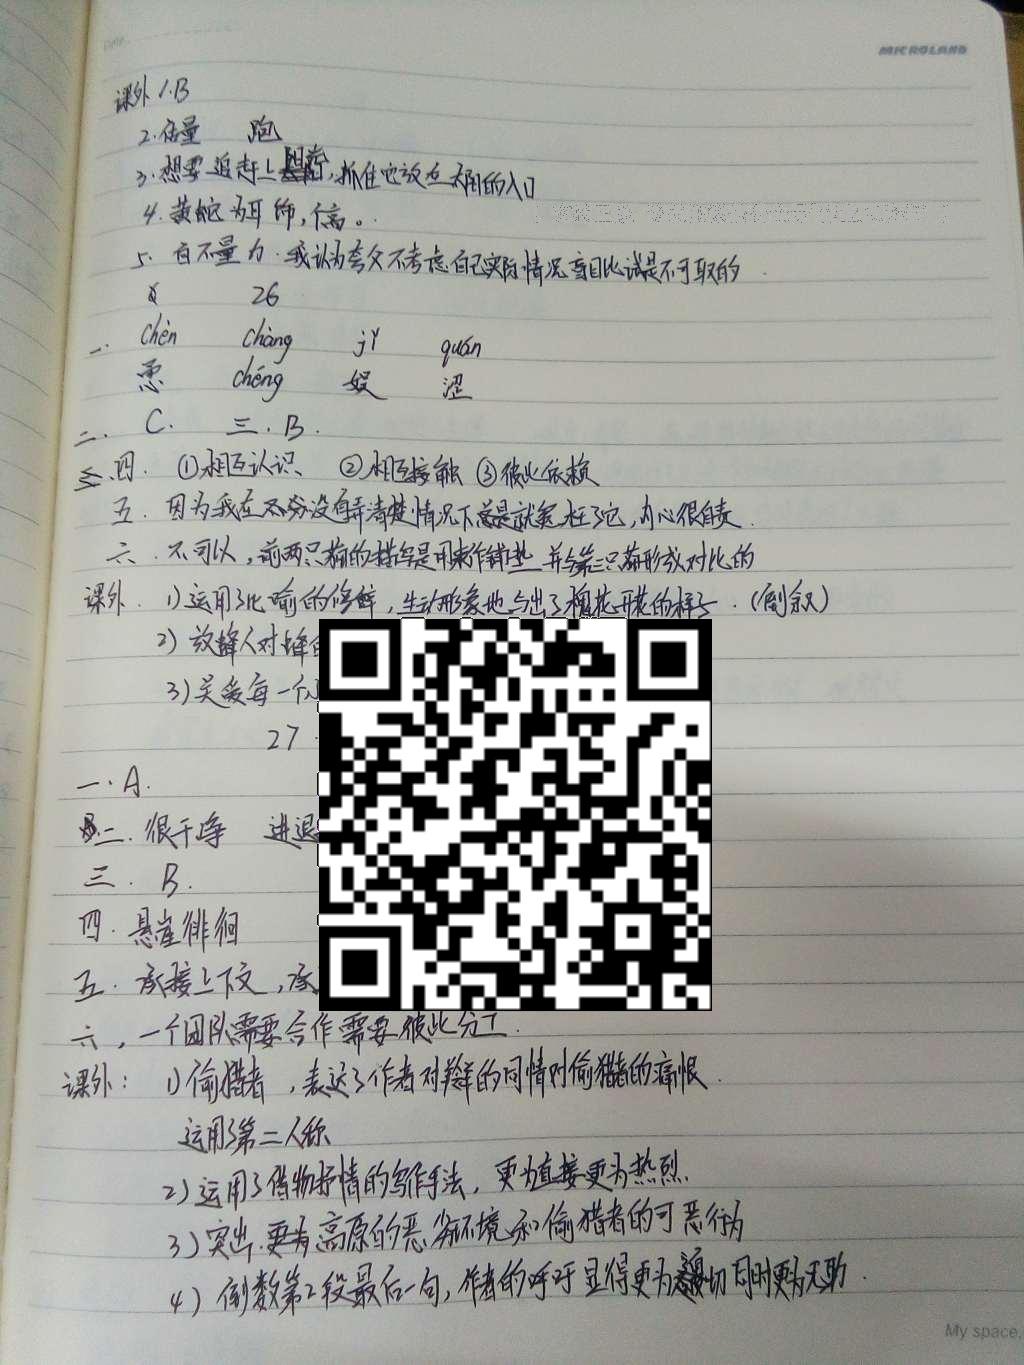 MICROLAND
课外 1.B
2.估量 跑
3.想要追赶上,抓住它放在太阳的入口
4.黄蛇为耳饰,信。
5.自不量力.我认为夸父不考虑自己实际情况盲目比试是不可取的.
26
一. chèn chàng jǐ quán
chéng 娱 涩
二. C. 三.B.
四. ①相互认识 ②相互接触 ③彼此依赖
五.因为我在不分没有弄清楚情况下总是就冤枉了它,内心很自责.
六.不可以,前两只猫的描写是用来作铺垫并与第三只猫形成对比的
课外.1)运用了比喻的修辞,生动形象地写出了开花的样子.(倒叙)
2)放蜂人对蜂
3)关爱每一个
27
一.A.
二.很干净 进退
三. B.
四.悬崖徘徊
五.承接上下文,承
六,一个团队需要合作需要彼此分工.
课外: 1)偷猎者,表达了作者对羚羊的同情对偷猎者的痛恨.
运用了第二人称
2)运用了借物抒情的写作手法,更为直接更为热烈.
3)突出.更为高原的恶劣环境和偷猎者的可恶行为
4)倒数第2段最后一句,作者的呼吁显得更为切同时更为无助.
My space.